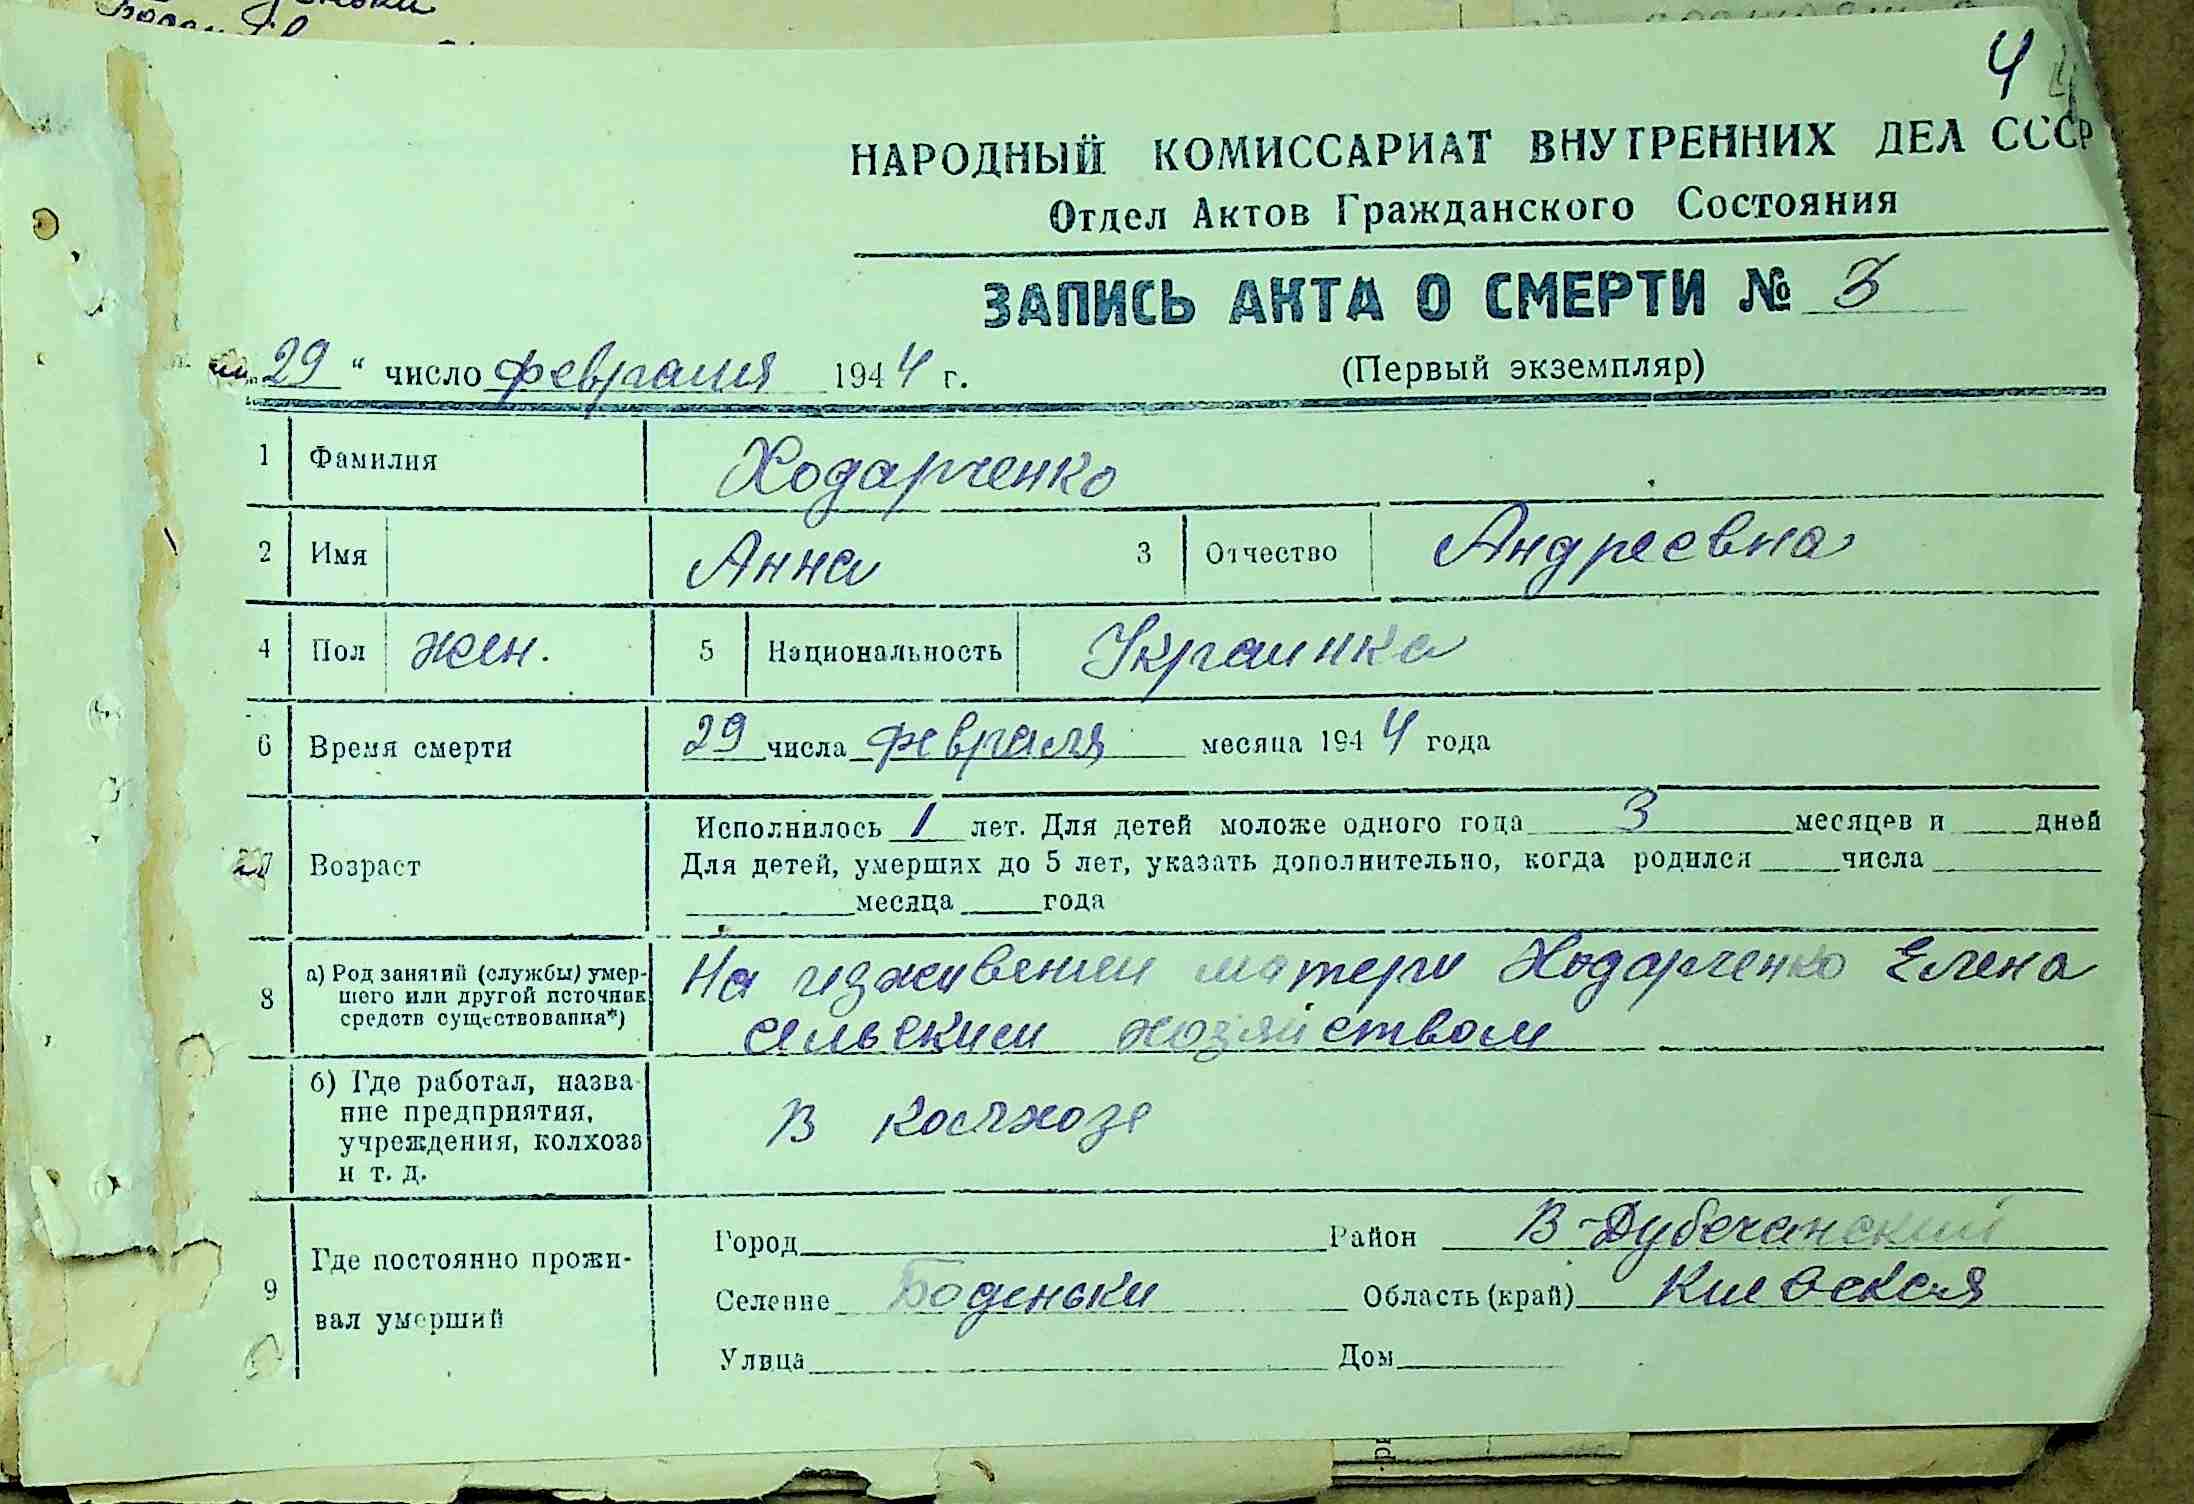 4
НАРОДНЫЙ КОМИССАРИАТ ВНУТРЕННИХ ДЕЛ СССР
Отдел Актов Гражданского Состояния
ЗАПИСЬ АКТА О СМЕРТИ № 3
29 " число февраля 1944 г. (Первый экземпляр)
1 Фамилия Ходарченко
2 Имя Анна 3 Отчество Андреевна
4 Пол жен. 5 Национальность Украинка
6 Время смерти 29 числа февраля месяца 1944 года
Исполнилось 1 лет. Для детей моложе одного года 3 месяцев и дней
Возраст Для детей, умерших до 5 лет, указать дополнительно, когда родился числа
месяца года
8 а) Род занятий (службы) умершего или другой источник средств существования*) На иждивении матери Ходарченко Елена
сельским хозяйством
б) Где работал, назва-
ние предприятия, В колхозе
учреждения, колхоза
и т. д.
Город Район В-Дубечанский
9 Где постоянно прожи- Селение Боденьки Область (край) Киевская
вал умерший Улица Дом